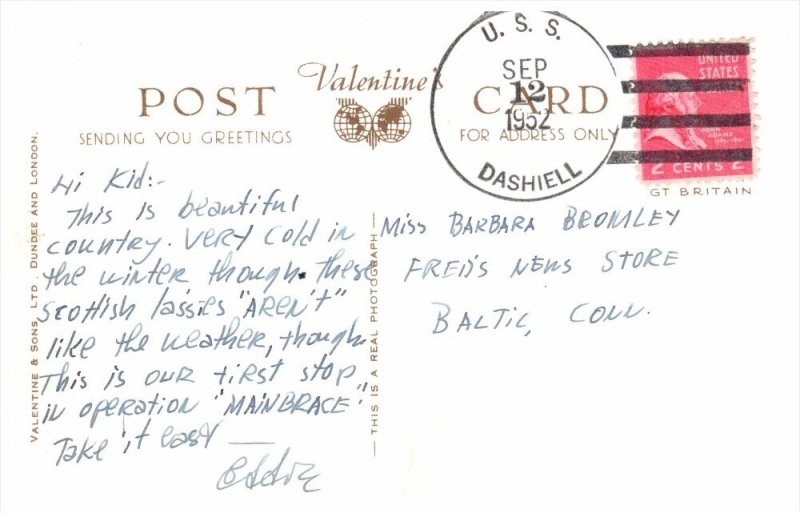 U. S. S.
SEP
12
1952
DASHIELL
UNITED
STATES
JOHN
ADAMS
2 CENTS 2
GT BRITAIN
Valentine's
POST CARD
SENDING YOU GREETINGS
FOR ADDRESS ONLY
VALENTINE & SONS, LTD. DUNDEE AND LONDON.
Hi Kid:-
This is beautiful
country. Very cold in
the winter though. These
Scottish lassies "AREN'T"
like the weather, though.
This is our first stop
in operation "MAINBRACE".
Take it easy
Eddie
THIS IS A REAL PHOTOGRAPH
Miss BARBARA BROMLEY
FRED'S NEWS STORE
BALTIC, CONN.